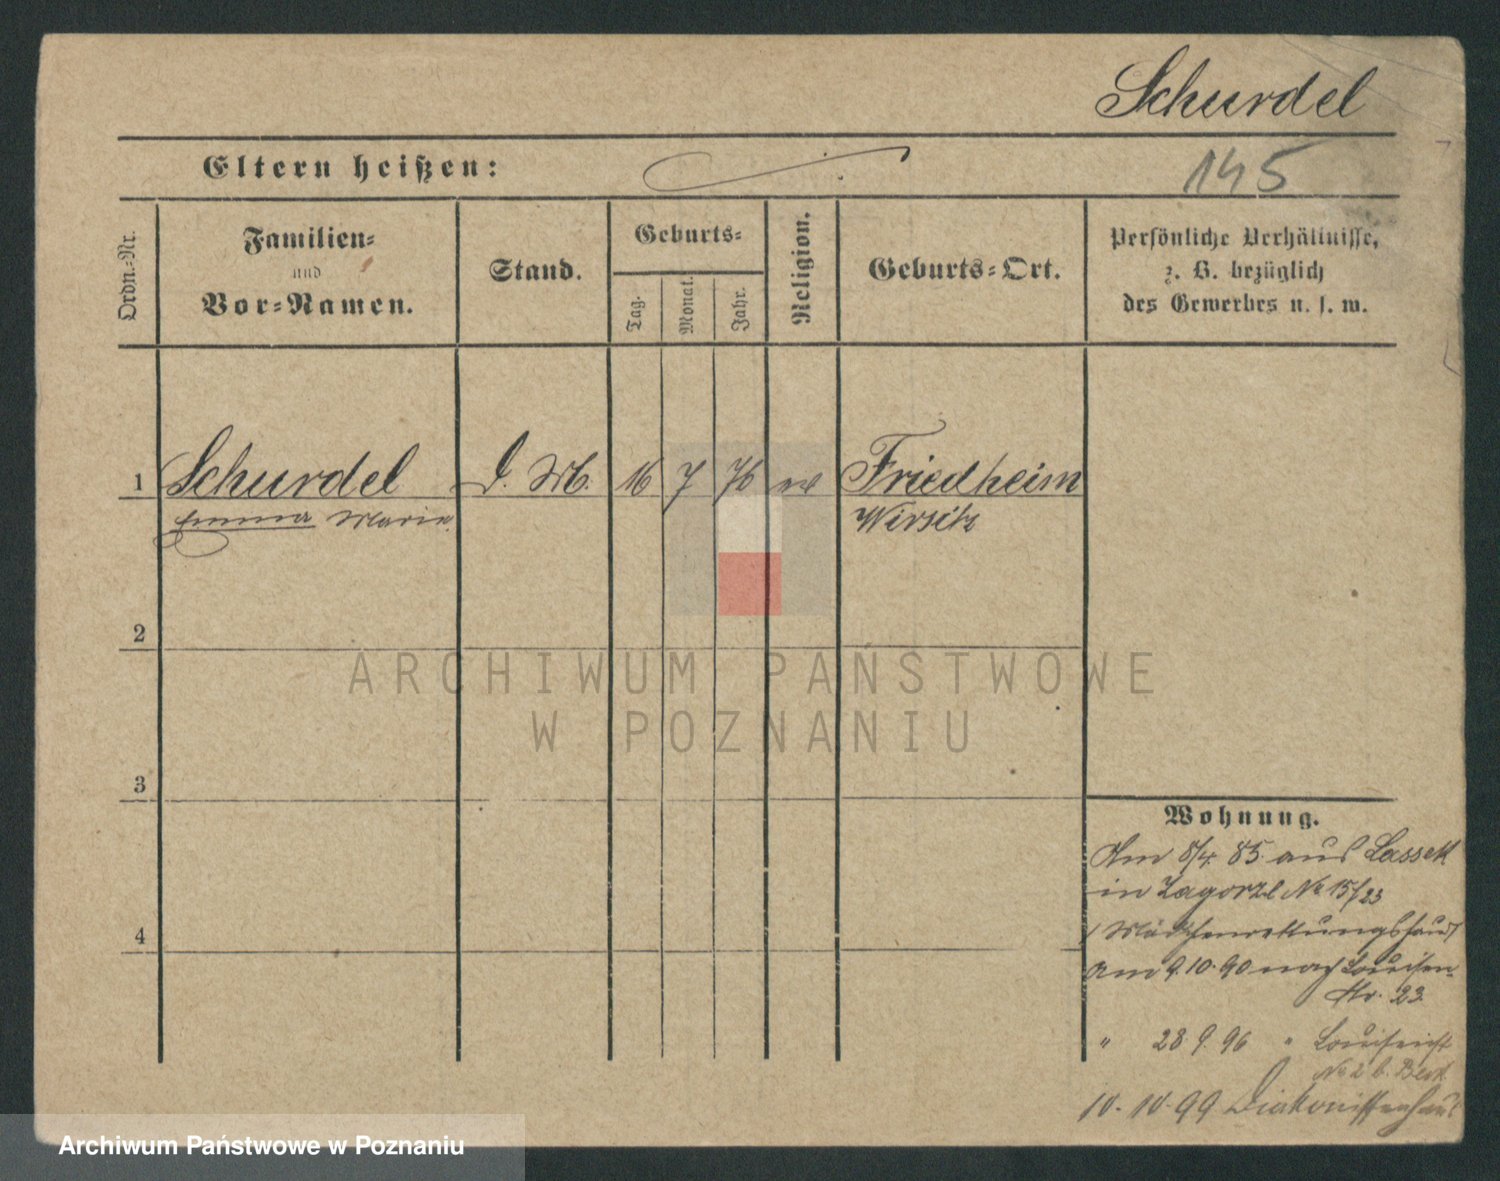 Schurdel
Eltern heißen:
145
Ordn.-Nr.
Familien-
und
Vor-Namen.
Stand.
Geburts-
Tag.
Monat.
Jahr.
Religion.
Geburts-Ort.
Persönliche Verhältnisse,
z. B. bezüglich
des Gewerbes u. s. w.
1 Schurdel D. M. 16 7 76 ev Friedheim
Emma Marie Wirsitz
2
ARCHIWUM PAŃSTWOWE
W POZNANIU
3
4
Wohnung.
Am 8/4. 85. aus Lassek
in Zagorze No 15/23
Mädchenrettungshaus
Am 9.10.90 nach Louisen-
Str. 23.
" 28 9. 96 " Louisenst
No 2 b.
10. 10. 99 Diakonissenhaus
Archiwum Państwowe w Poznaniu